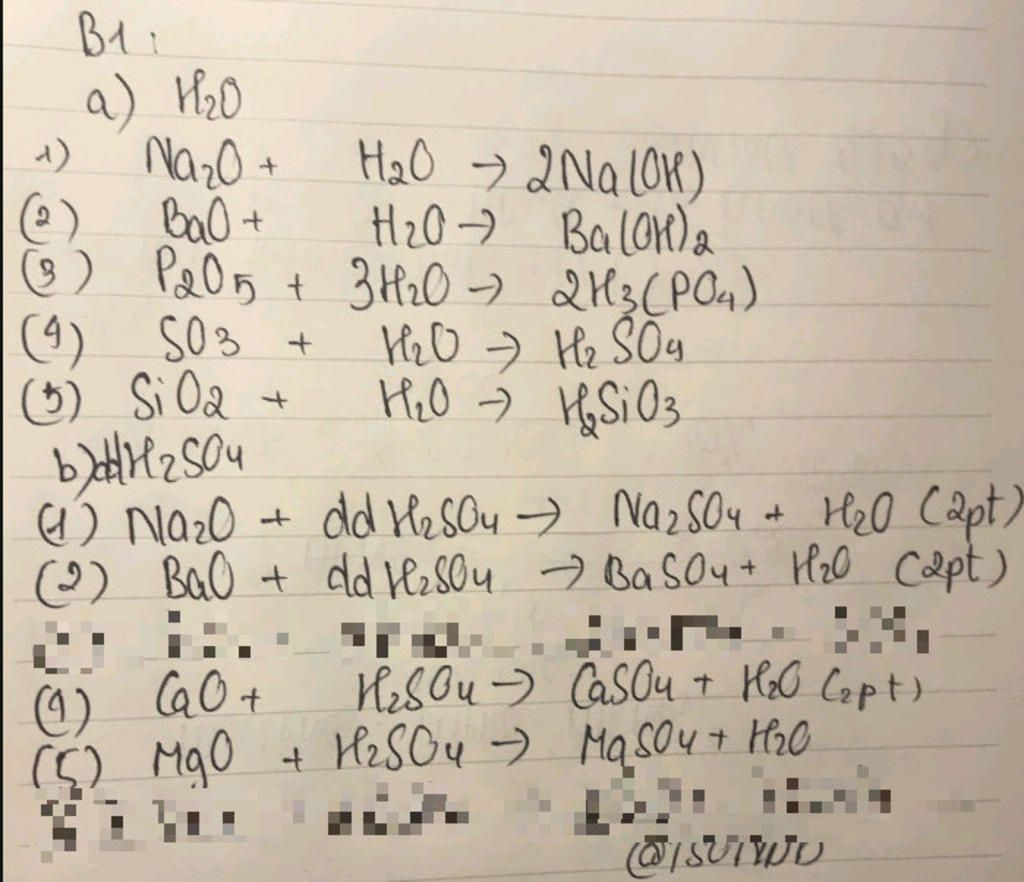 B1:
a) H2O
1) Na2O + H2O → 2Na(OH)
(2) BaO + H2O → Ba(OH)2
(3) P2O5 + 3H2O → 2H3(PO4)
(4) SO3 + H2O → H2SO4
(5) SiO2 + H2O → H2SiO3
b) dd H2SO4
(1) Na2O + dd H2SO4 → Na2SO4 + H2O (2pt)
(2) BaO + dd H2SO4 → BaSO4 + H2O (2pt)
(4) CaO + H2SO4 → CaSO4 + H2O (2pt)
(5) MgO + H2SO4 → MgSO4 + H2O